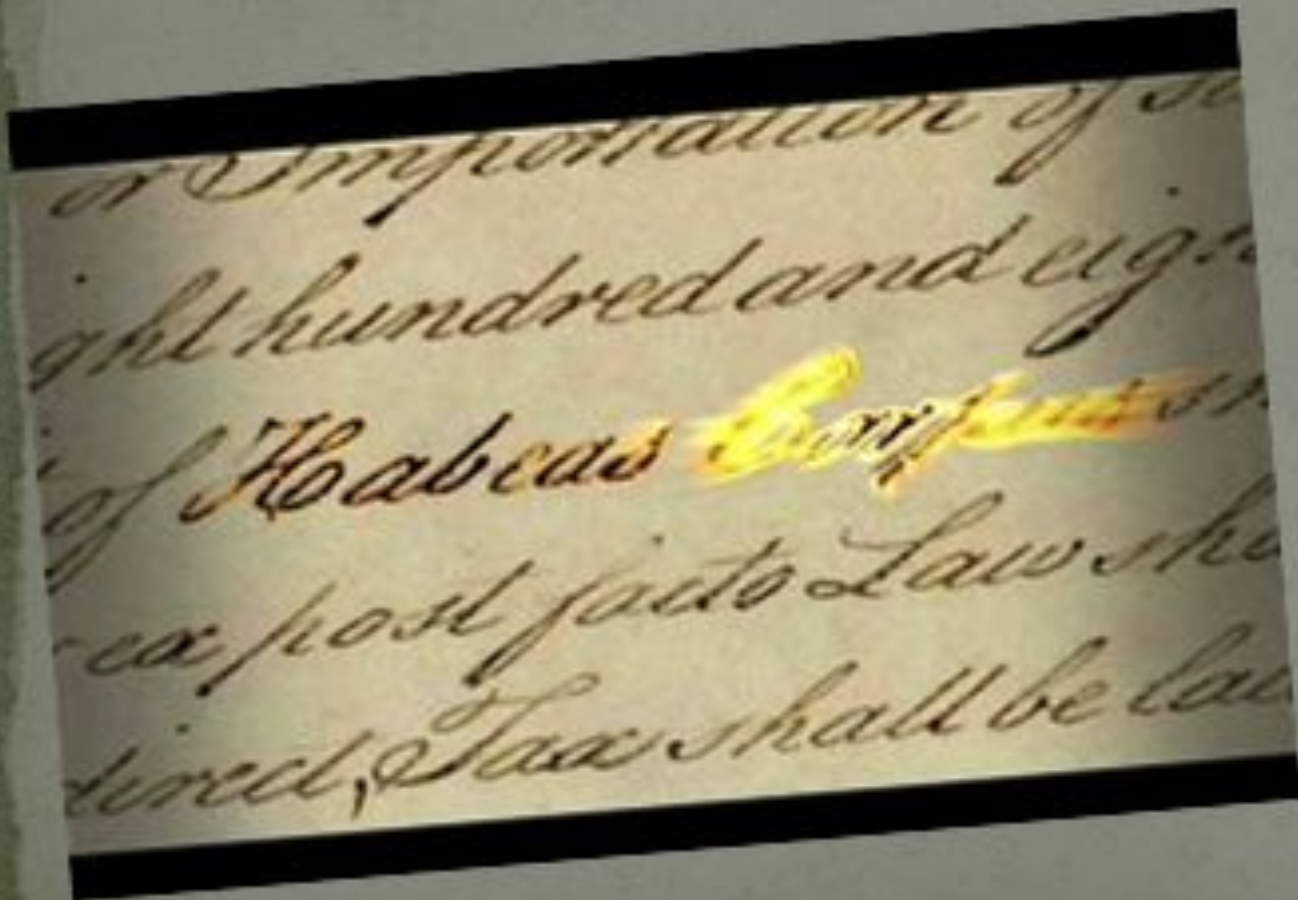 or Importation of
ght hundred and eigh
of Habeas Corpus
ex post facto Law sha
direct, Tax shall be lai